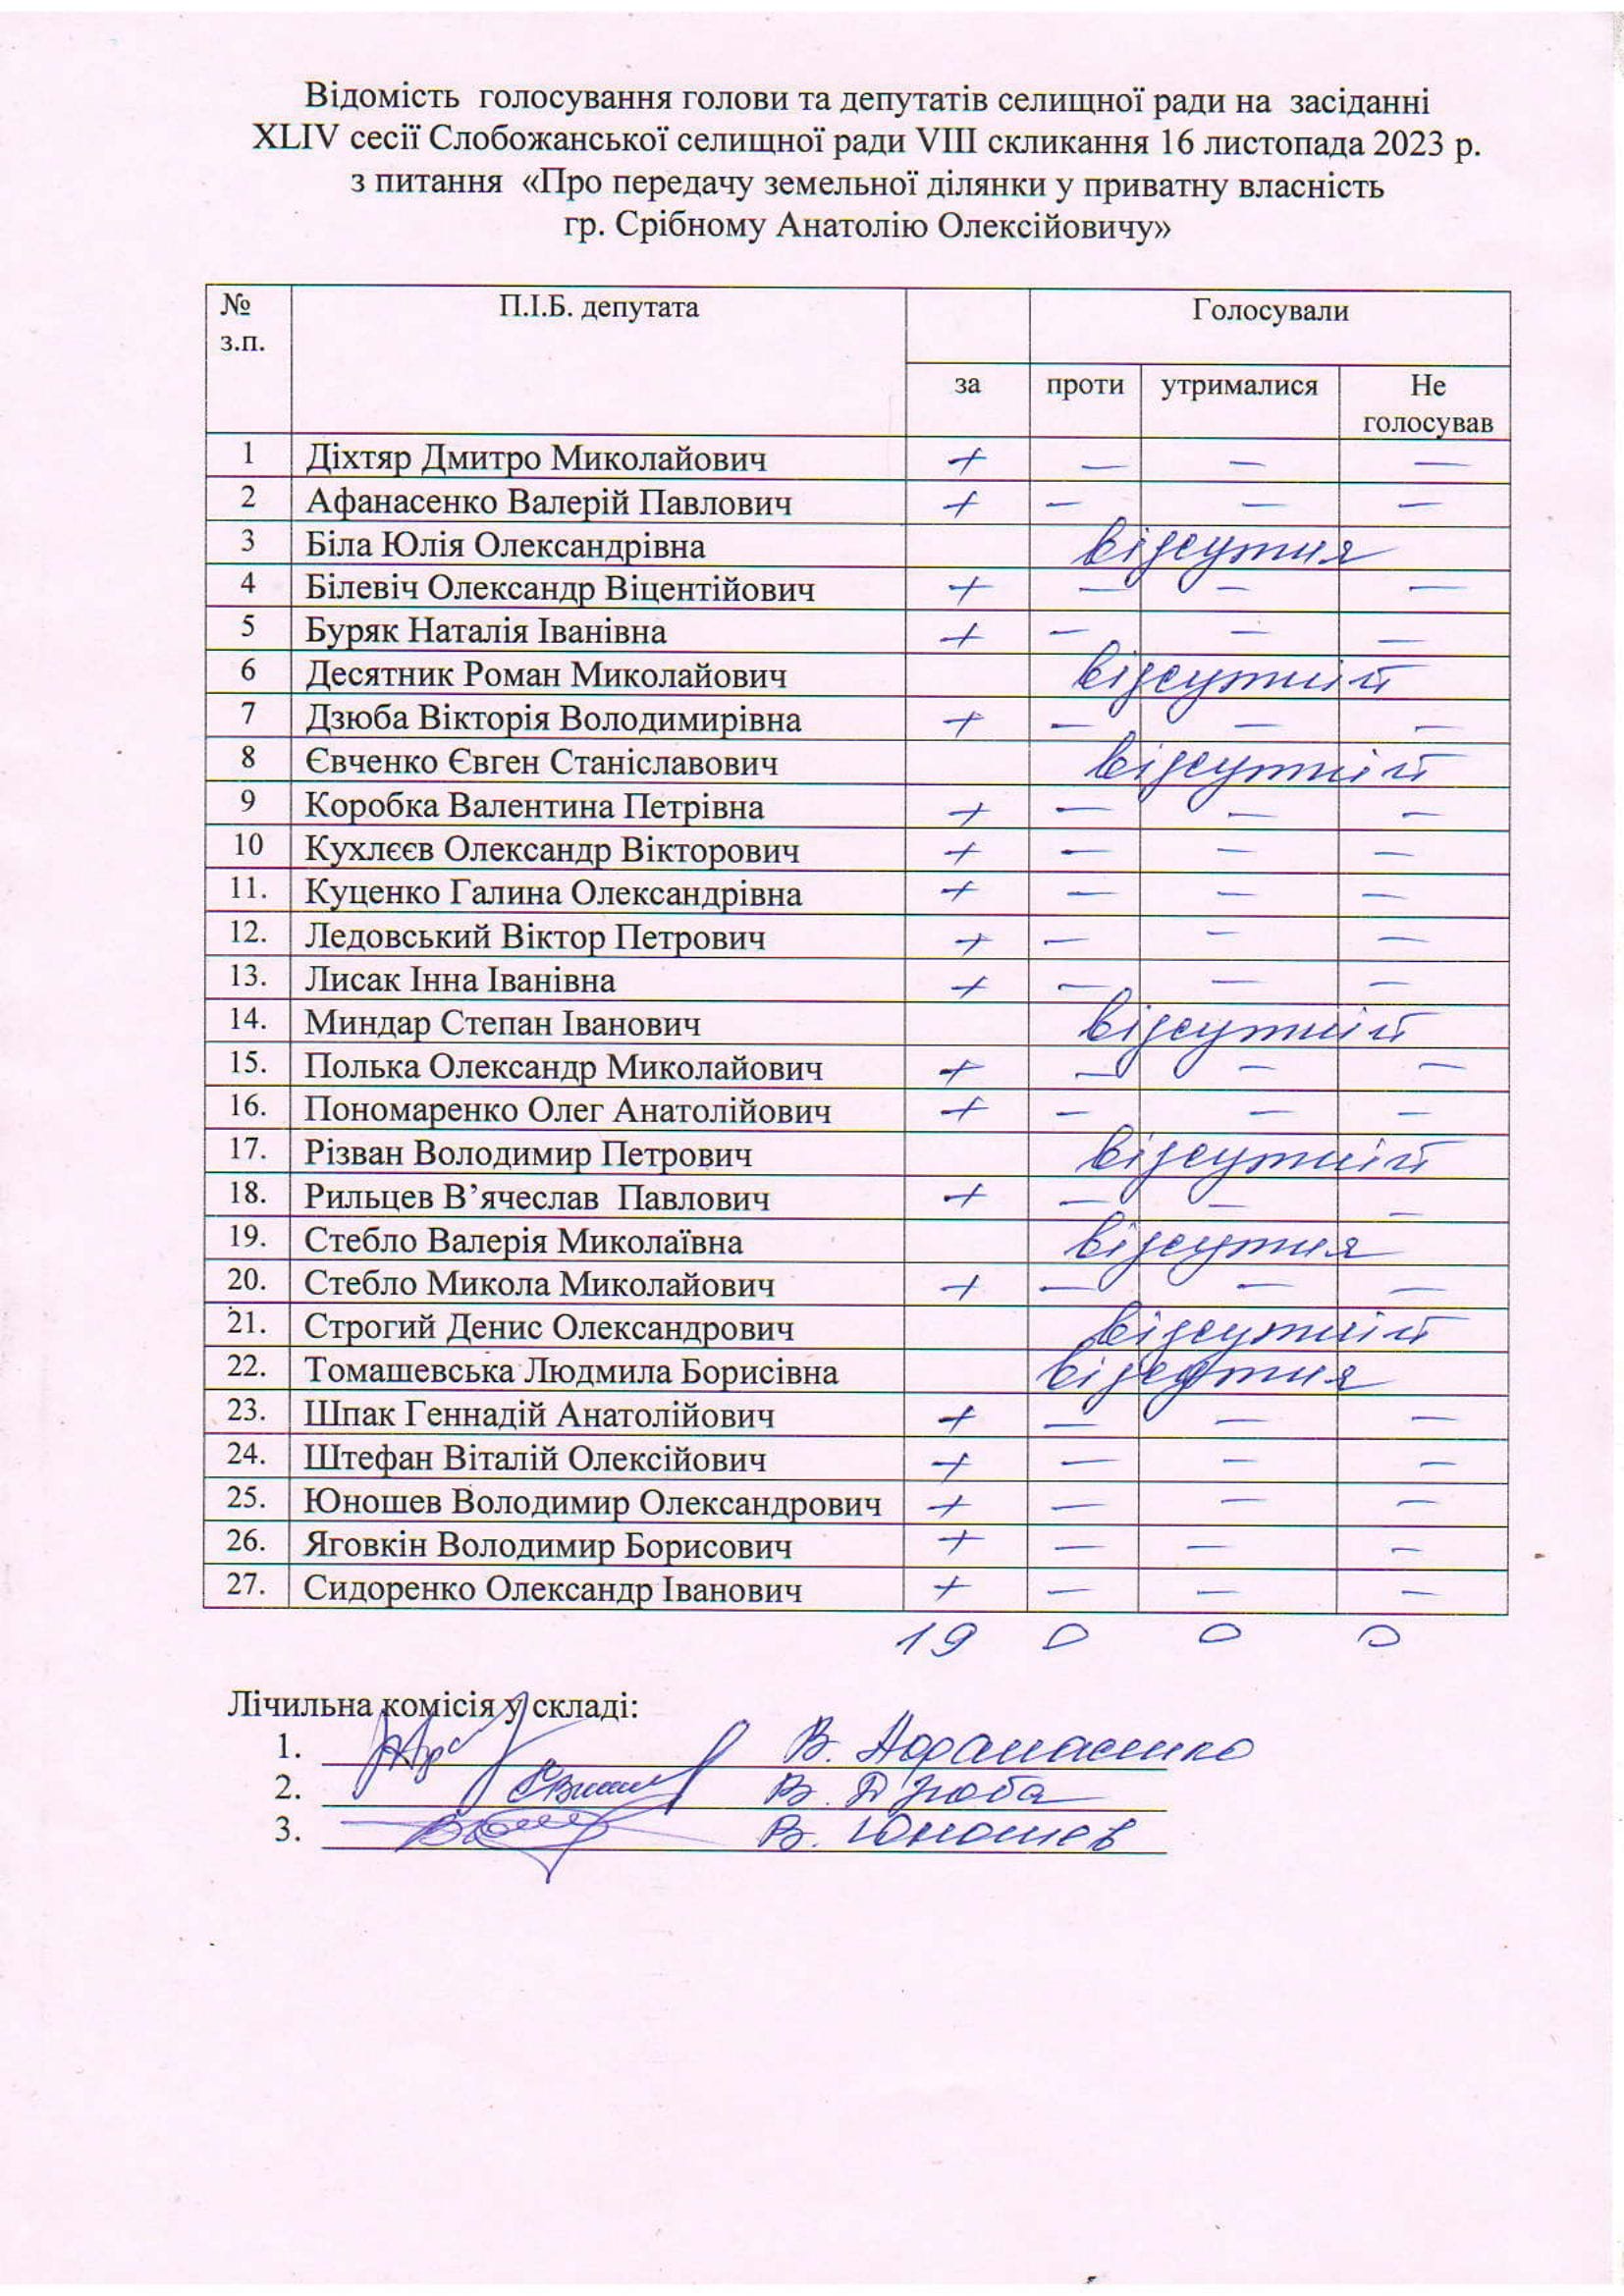 Відомість голосування голови та депутатів селищної ради на засіданні
XLIV сесії Слобожанської селищної ради VIII скликання 16 листопада 2023 р.
з питання «Про передачу земельної ділянки у приватну власність
гр. Срібному Анатолію Олексійовичу»
№ з.п. П.І.Б. депутата Голосували
за проти утрималися Не голосував
1 Діхтяр Дмитро Миколайович + — — —
2 Афанасенко Валерій Павлович + — — —
3 Біла Юлія Олександрівна відсутня
4 Білевіч Олександр Віцентійович + — — —
5 Буряк Наталія Іванівна + — — —
6 Десятник Роман Миколайович відсутній
7 Дзюба Вікторія Володимирівна + — — —
8 Євченко Євген Станіславович відсутній
9 Коробка Валентина Петрівна + — — —
10 Кухлєєв Олександр Вікторович + — — —
11. Куценко Галина Олександрівна + — — —
12. Ледовський Віктор Петрович + — — —
13. Лисак Інна Іванівна + — — —
14. Миндар Степан Іванович відсутній
15. Полька Олександр Миколайович + — — —
16. Пономаренко Олег Анатолійович + — — —
17. Різван Володимир Петрович відсутній
18. Рильцев В’ячеслав Павлович + — — —
19. Стебло Валерія Миколаївна відсутня
20. Стебло Микола Миколайович + — — —
21. Строгий Денис Олександрович відсутній
22. Томашевська Людмила Борисівна відсутня
23. Шпак Геннадій Анатолійович + — — —
24. Штефан Віталій Олексійович + — — —
25. Юношев Володимир Олександрович + — — —
26. Яговкін Володимир Борисович + — — —
27. Сидоренко Олександр Іванович + — — —
19 0 0 0
Лічильна комісія у складі:
1. В. Афанасенко
2. В. Дзюба
3. В. Юношев